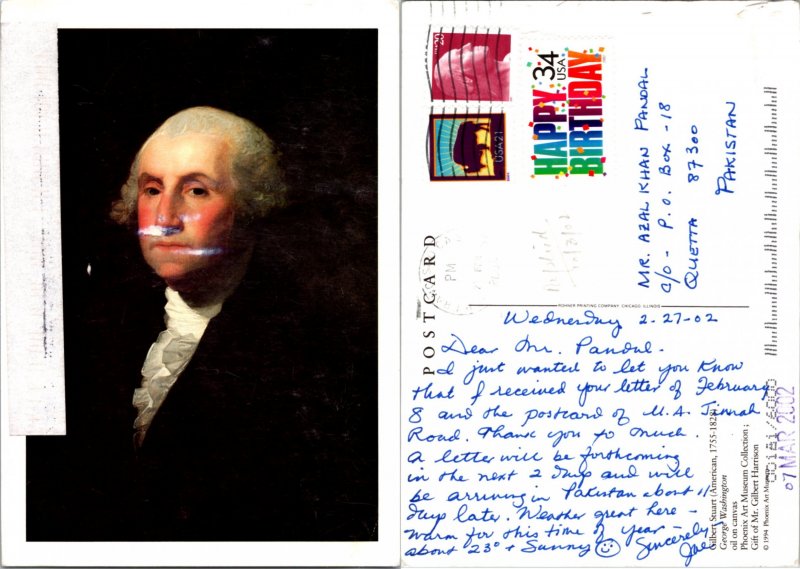 POSTCARD
USA20
34 USA
HAPPY BIRTHDAY
USA21
PM
MR. AZAL KHAN PANDAL
c/o - P.O. BOX - 18
QUETTA 87300
PAKISTAN
BOHNER PRINTING COMPANY, CHICAGO, ILLINOIS
Wednesday 2-27-02
Dear Mr. Pandal -
I just wanted to let you know
that I received your letter of February
8 and the postcard of M.A. Jinnah
Road. Thank you so much.
A letter will be forthcoming
in the next 2 days and will
be arriving in Pakistan about 11
days later. Weather great here -
warm for this time of year -
about 23° + Sunny ☺ Sincerely,
Gilbert Stuart (American, 1755-1828)
George Washington
oil on canvas
Phoenix Art Museum Collection;
Gift of Mr. Gilbert Harrison
© 1994 Phoenix Art Museum
07 MAR 2002